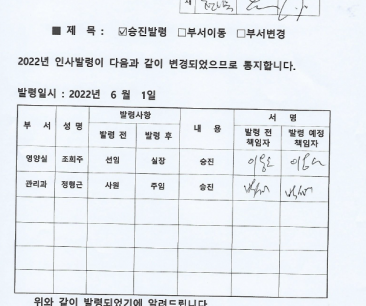 ■ 제 목 : ☑승진발령 □부서이동 □부서변경
2022년 인사발령이 다음과 같이 변경되었으므로 통지합니다.
발령일시 : 2022년 6 월 1일
부 서 성 명 발령사항 내 용 서 명
발령 전 발령 후 발령 전 책임자 발령 예정 책임자
영양실 조희주 선임 실장 승진
관리과 정형근 사원 주임 승진
위와 같이 발령되었기에 알려드립니다